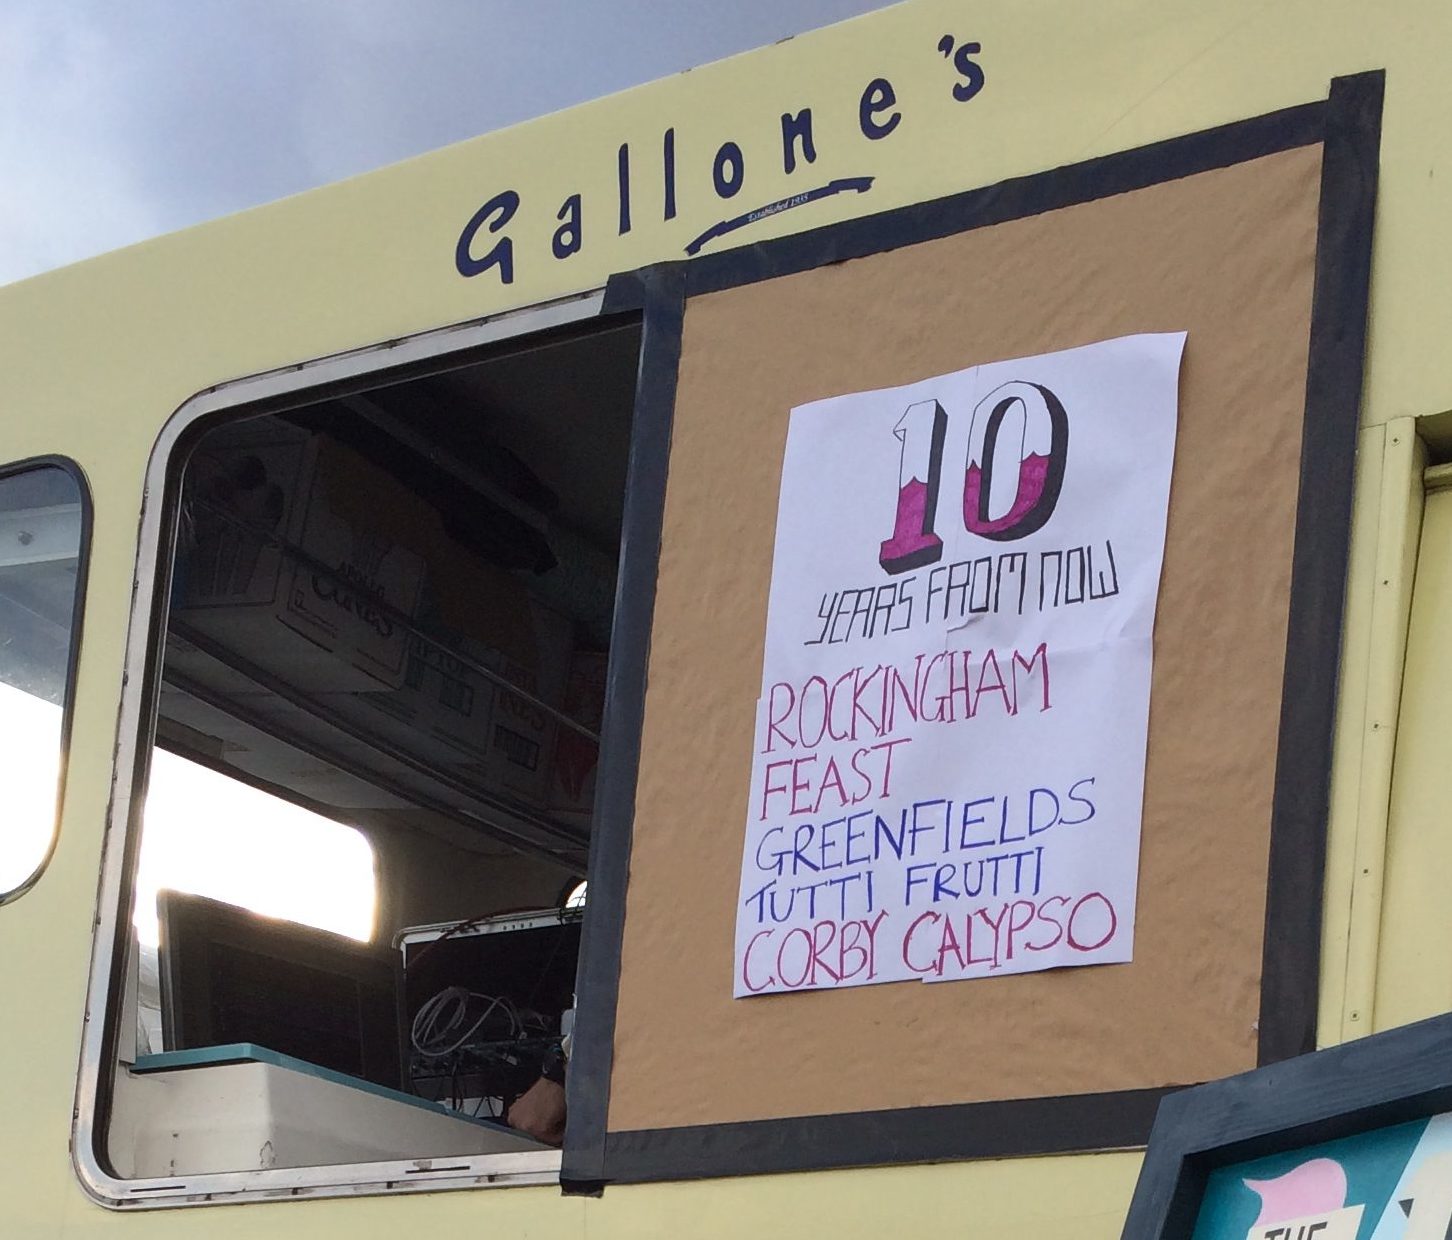 Gallone's
Established 1935
10
YEARS FROM NOW
ROCKINGHAM
FEAST
GREENFIELDS
TUTTI FRUTTI
CORBY CALYPSO
CONES
THE